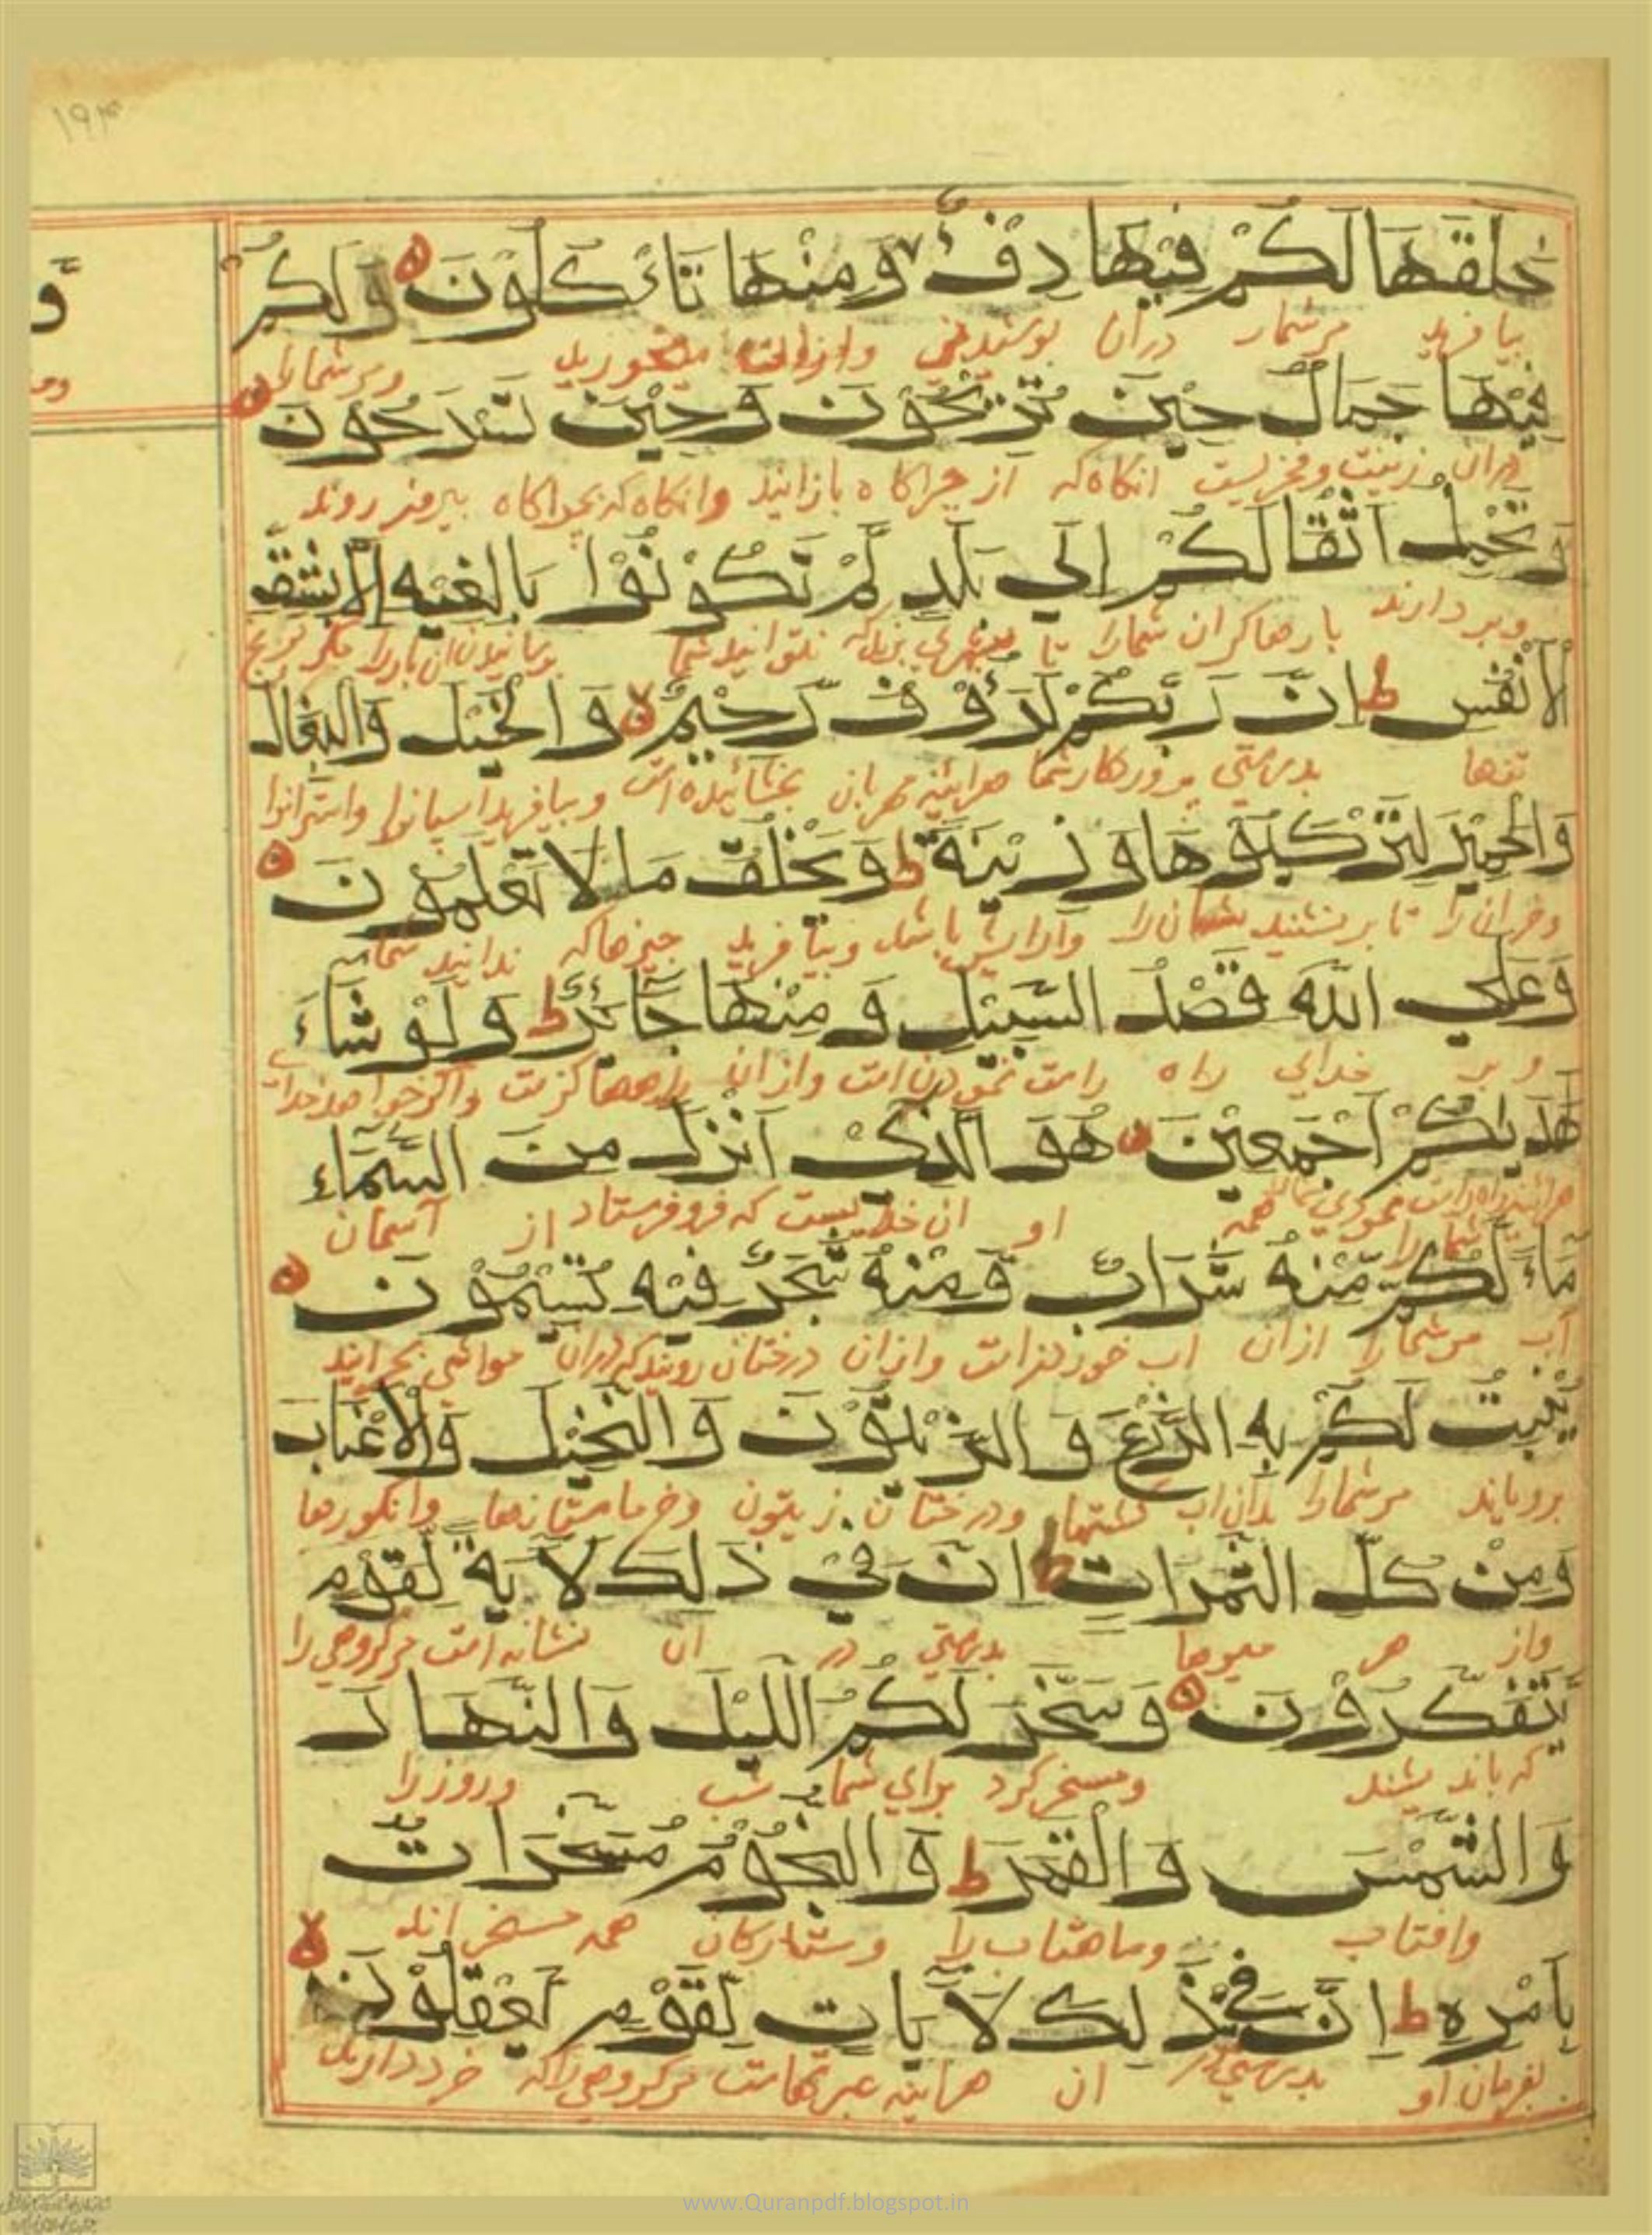 ۱۹۳
خَلَقَهَا لَكُمْ فِيهَا دِفْءٌ وَمِنْهَا تَأْكُلُوْنَ وَلَكُمْ
بیافرید مرشمارا دران پوشیدنی وازانست میخورید ومرشمارا
فِيْهَا جَمَالٌ حِيْنَ تُرِيْحُوْنَ وَحِيْنَ تَسْرَحُوْنَ
دران زینت وفخریست انکاه که از چراکاه بازایند وانکاه که بچراکاه بیرون روند
وَتَحْمِلُ اَثْقَالَكُمْ اِلٰي بَلَدٍ لَّمْ تَكُوْنُوْا بَالِغِيْهِ اِلَّا بِشِقِّ
وبردارند بارهاکران شمارا تا نتوانید شما مکر برنج
الْاَنْفُسِ ط اِنَّ رَبَّكُمْ لَرَءُوْفٌ رَّحِيْمٌ وَالْخَيْلَ وَالْبِغَالَ
تنها بدرستی پروردکارشما هراینه مهربان بخشائیده است وبیافرید اسپانرا واسترانرا
وَالْحَمِيْرَ لِتَرْكَبُوْهَا وَزِيْنَةً ط وَيَخْلُقُ مَا لَا تَعْلَمُوْنَ
وخرانرا تا برنشینید وآرایش باشد وبیافرید چیزهاکه ندانید شما
وَعَلَي اللّٰهِ قَصْدُ السَّبِيْلِ وَمِنْهَا جَآئِرٌ ط وَلَوْ شَآءَ
وبر خدای راه راست نمودن است وازان راهها کژست واکر خواهد خدای
هَدٰىكُمْ اَجْمَعِيْنَ هُوَ الَّذِيْ اَنْزَلَ مِنَ السَّمَآءِ
شمارا همه او ان خدایست که فروفرستاد از آسمان
مَآءً لَّكُمْ مِّنْهُ شَرَابٌ وَّمِنْهُ شَجَرٌ فِيْهِ تُسِيْمُوْنَ
آب مرشمارا ازان اب خوردنست وازان درختان رویدکه دران مواشی بچرانید
يُنْبِتُ لَكُمْ بِهِ الزَّرْعَ وَالزَّيْتُوْنَ وَالنَّخِيْلَ وَالْاَعْنَابَ
برویاند مرشمارا بدان اب کشتها ودرختان زیتون وخرماستانها وانکورها
وَمِنْ كُلِّ الثَّمَرَاتِ ط اِنَّ فِيْ ذٰلِكَ لَاٰيَةً لِّقَوْمٍ
واز هر میوها بدرستی در ان نشانه است مرکروهی را
يَّتَفَكَّرُوْنَ وَسَخَّرَ لَكُمُ اللَّيْلَ وَالنَّهَارَ
که باندیشند ومسخرکرد برای شما شب وروزرا
وَالشَّمْسَ وَالْقَمَرَ ط وَالنُّجُوْمُ مُسَخَّرَاتٌ
وافتاب وماهتاب را وستارکان همه مسخرانند
بِاَمْرِهِ ط اِنَّ فِيْ ذٰلِكَ لَاٰيَاتٍ لِّقَوْمٍ يَّعْقِلُوْنَ
بفرمان او بدرستی در ان هراینه عبرتهاست مرکروهی راکه خرد دارند
www.Quranpdf.blogspot.in